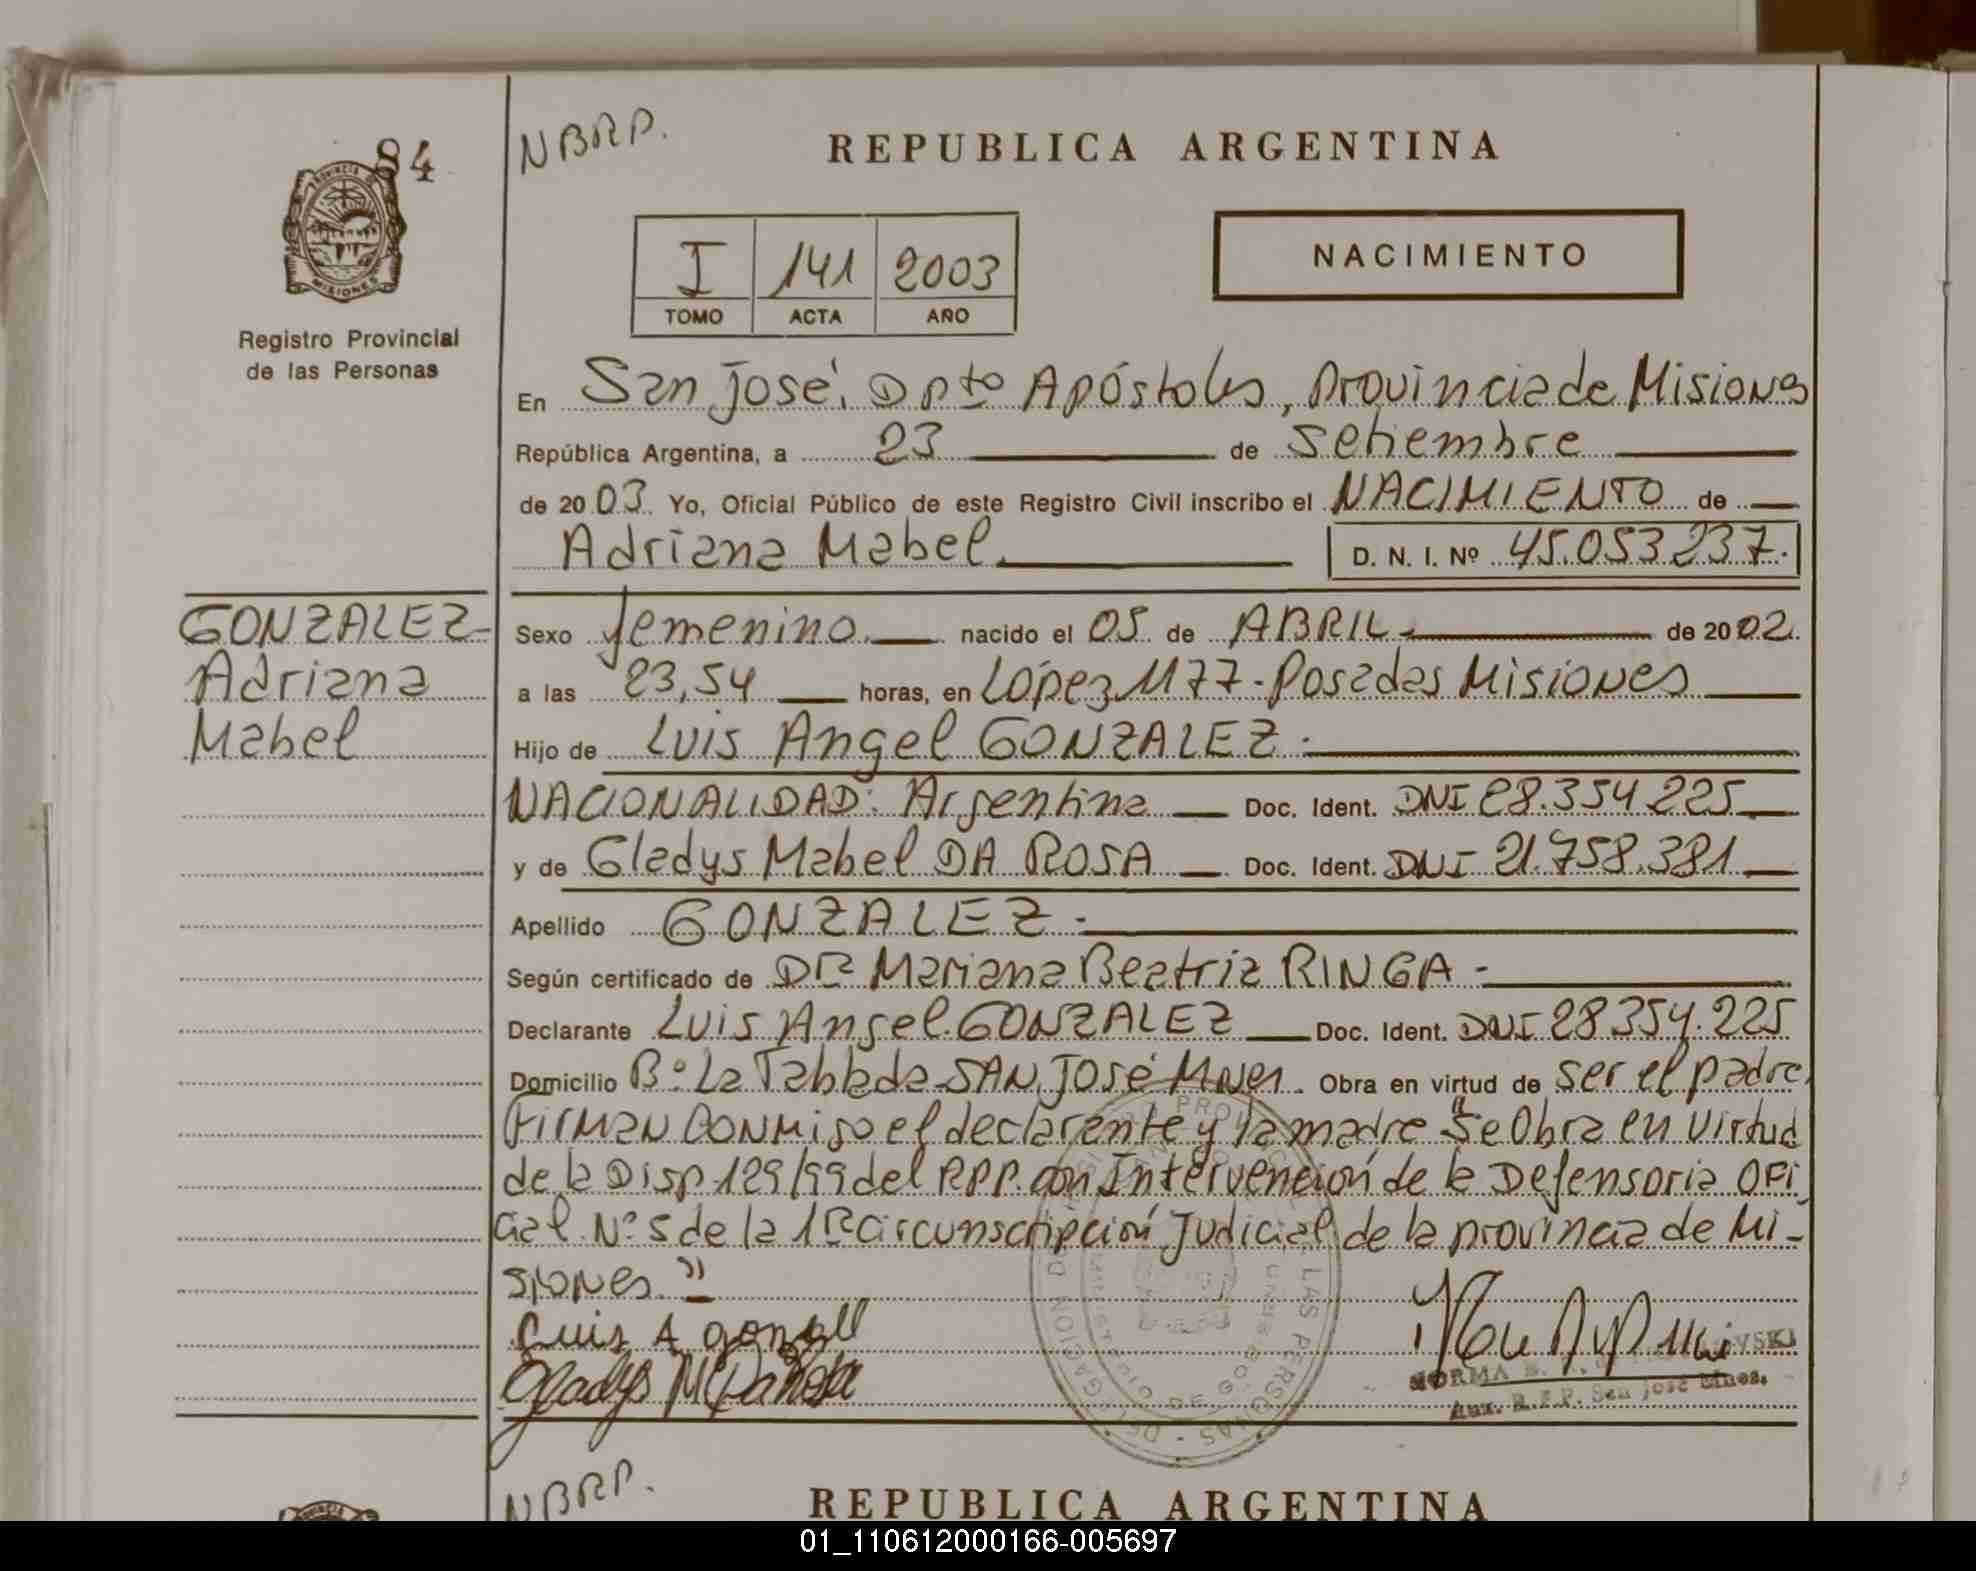 84
PROVINCIA DE
MISIONES
Registro Provincial
de las Personas
GONZALEZ
Adriana
Mabel
NBRP.
REPUBLICA ARGENTINA
I 141 2003
TOMO ACTA AÑO
NACIMIENTO
En San José, Dpto Apóstoles, provincia de Misiones
República Argentina, a 23 de Setiembre
de 2003. Yo, Oficial Público de este Registro Civil inscribo el NACIMIENTO de
Adriana Mabel. D. N. I. Nº 45.053.237.
Sexo femenino. nacido el 05 de ABRIL.- de 2002.
a las 23,54 horas, en López 1177 - Posadas Misiones
Hijo de Luis Angel GONZALEZ.
NACIONALIDAD: Argentina Doc. Ident. DNI 28.354.225
y de Gladys Mabel DA ROSA Doc. Ident. DNI 21.758.381
Apellido GONZALEZ.
Según certificado de DRa Mariana Beatriz RINGA -
Declarante Luis Angel GONZALEZ Doc. Ident. DNI 28.354.225
Domicilio Bº La Tablada - SAN JOSÉ Mnes. Obra en virtud de ser el padre,
FIRMAN CONMigo el declarante y la madre "Se Obra en Virtud
de la Disp. 129/99 del RPP. con Intervención de la Defensoria OFi
cial Nº 5 de la 1ra Circunscripción Judicial de la provincia de Mi-
siones."
Luis A gonzall
Gladys M Da Rosa
NORMA B.
Aux. R.P.P. San José Mnes.
LAS PERSONAS - DELEGACION
NBRP.
REPUBLICA ARGENTINA
01_110612000166-005697